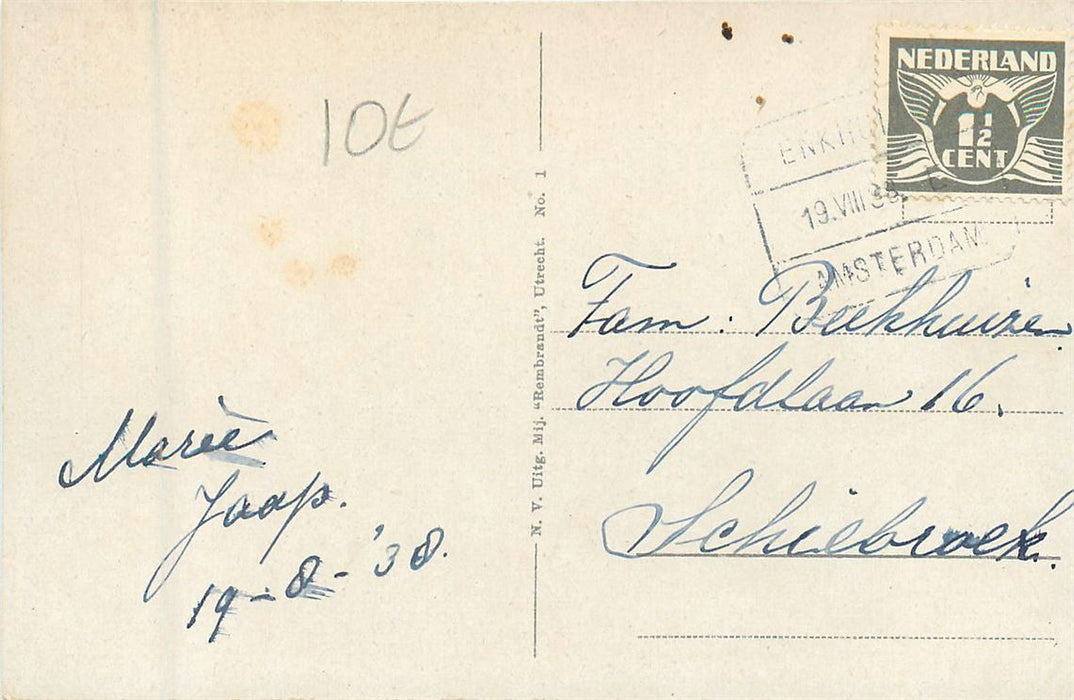 10t
NEDERLAND
1½
CENT
19.VIII 38
AMSTERDAM
N. V. Uitg. Mij. "Rembrandt", Utrecht. No. 1
Fam. Beekhuizen
Hoofdlaan 16.
Schiebroek.
Marië
Jaap.
19-8-'38.